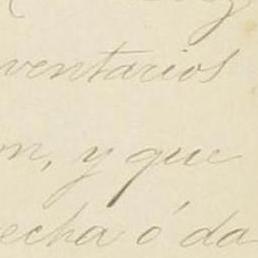 ventarios
on, y que
echa ó da